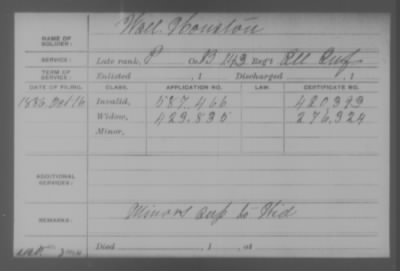 NAME OF SOLDIER: Wall Houston
SERVICE: Late rank, P Co. B 143 Reg't Ill Inf
TERM OF SERVICE: Enlisted , 1 Discharged , 1
DATE OF FILING. CLASS. APPLICATION NO. LAW. CERTIFICATE NO.
1886 Oct 16 Invalid, 587.466 420,393
Widow, 429.835 276,324
Minor,
ADDITIONAL SERVICES:
REMARKS: Minors to Wid
Died , 1 , at